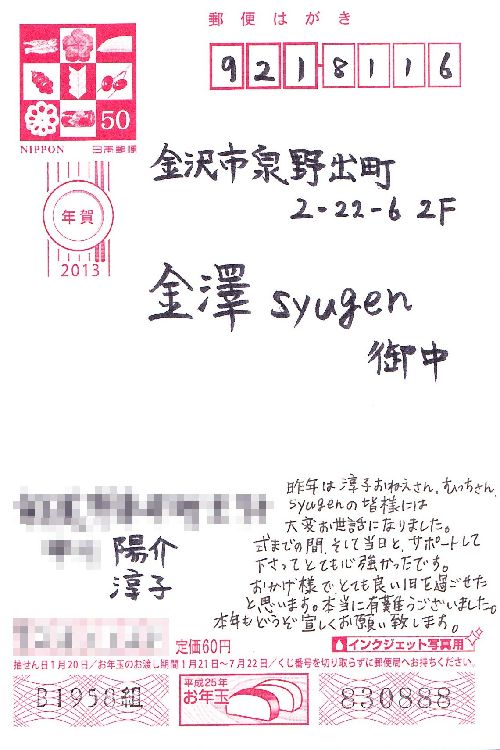 郵便はがき
921-8116
50
NIPPON 日本郵便
年賀
2013
金沢市泉野出町
2-22-6 2F
金澤 syugen
御中
陽介
淳子
昨年は淳子おねえさん、むっちゃん、
syugenの皆様には
大変お世話になりました。
式までの間、そして当日と、サポートして
下さってとても心強かったです。
おかげ様でとても良い日を過ごせた
と思います。本当に有難うございました。
本年もどうぞ宜しくお願い致します。
定価60円
インクジェット写真用
抽せん日1月20日/お年玉のお渡し期間1月21日~7月22日/くじ番号を切り取らずに郵便局へお持ちください。
B1958組
平成25年
お年玉
830888